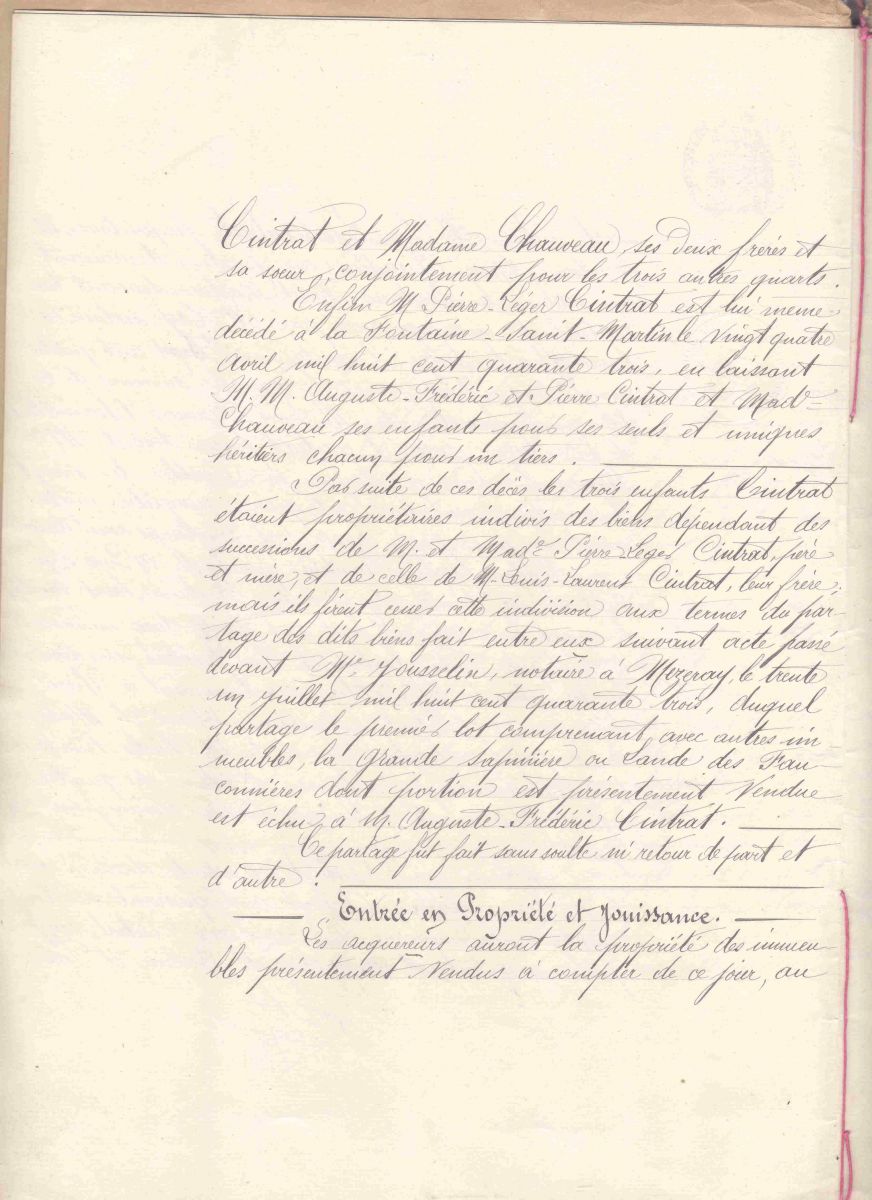 Cintrat et Madame Chauveau, ses deux frères et
sa soeur, conjointement pour les trois autres quarts.
Enfin M Pierre-Leger Cintrat est lui meme
décédé à la Fontaine-Saint-Martin le Vingt quatre
Avril mil huit cent quarante trois, en laissant
M.M. Auguste-Frédéric et Pierre Cintrat et Made
Chauveau ses enfants pour ses seuls et uniques
héritiers chacun pour un tiers.
Par suite de ces décès les trois enfants Cintrat
étaient propriétaires indivis des biens dépendant des
successions de M. et Made Pierre-Leger Cintrat, père
et mère, et de celle de M. Louis-Laurent Cintrat, leur frère;
mais ils firent cesser cette indivision aux termes du par-
tage des dits biens fait entre eux suivant acte passé
devant Me Jousselin, notaire à Mezeray, le trente
un Juillet mil huit cent quarante trois, duquel
partage le premier lot comprenant, avec autres im-
meubles, la Grande Sapinière ou Lande des Fau-
connières dont portion est présentement Vendue
est échu à M. Auguste-Frédéric Cintrat.
Ce partage fut fait sans soulte ni retour de part et
d'autre.
Entrée en Propriété et Jouissance.
Les acquereurs auront la propriété des immeu-
bles présentement Vendus à compter de ce jour, au